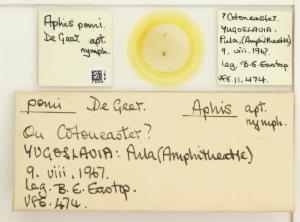 Aphis pomi.
De Geer. apt.
nymph.
? Cotoneaster.
YUGOSLAVIA:
Pula, (Amphitheatre)
9. viii. 1967.
leg. B. E. Eastop
VFE. 11,474.
pomi De Geer. Aphis apt.
nymph.
On Cotoneaster?
YUGOSLAVIA: Pula (Amphitheatre)
9. viii. 1967.
Leg. B. E. Eastop.
VFE. 474.